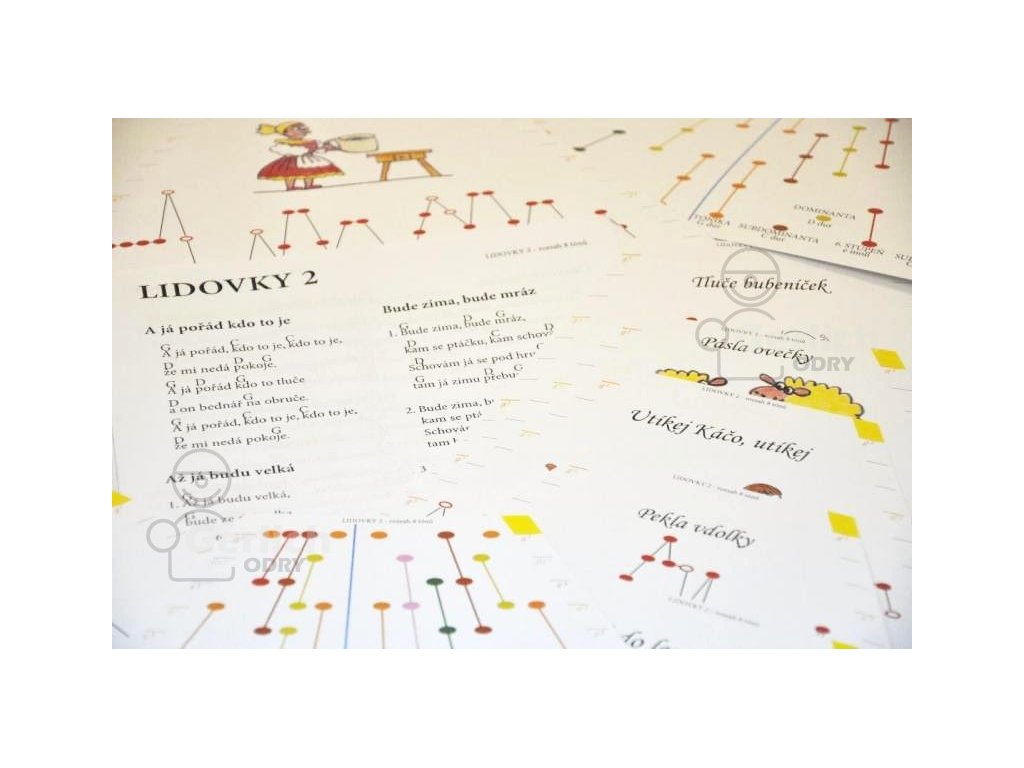 TONIKA
G dur
SUBDOMINANTA
C dur
DOMINANTA
D dur
6. STUPEŇ
e moll
LIDOVKY 2 - rozsah 8 tónů
LIDOVKY 2
A já pořád kdo to je
G C C
A já pořád, kdo to je, kdo to je,
D D G
že mi nedá pokoje.
G D G
A já pořád kdo to tluče
D G
a on bednář na obruče.
G C C
A já pořád, kdo to je, kdo to je,
D G
že mi nedá pokoje.
Až já budu velká
1. Až já budu velká,
G
bude ze
Bude zima, bude mráz
G D G
1. Bude zima, bude mráz,
C D
kam se ptáčku, kam schov
D C
Schovám já se pod hru
G D G
tam já zimu přebu
2. Bude zima, b
kam se ptá
Schovár
tam
3
Tluče bubeníček
LIDOVKY 2 - rozsah 8 tónů
Pásla ovečky
LIDOVKY 2 - rozsah 8 tónů
Utíkej Káčo, utíkej
LIDOVKY 2 - rozsah 8 tónů
Pekla vdolky
LIDOVKY 2 - rozsah 8 tónů
LIDOVKY 2 - rozsah 8 tónů
ODRY
Gerlich
ODRY